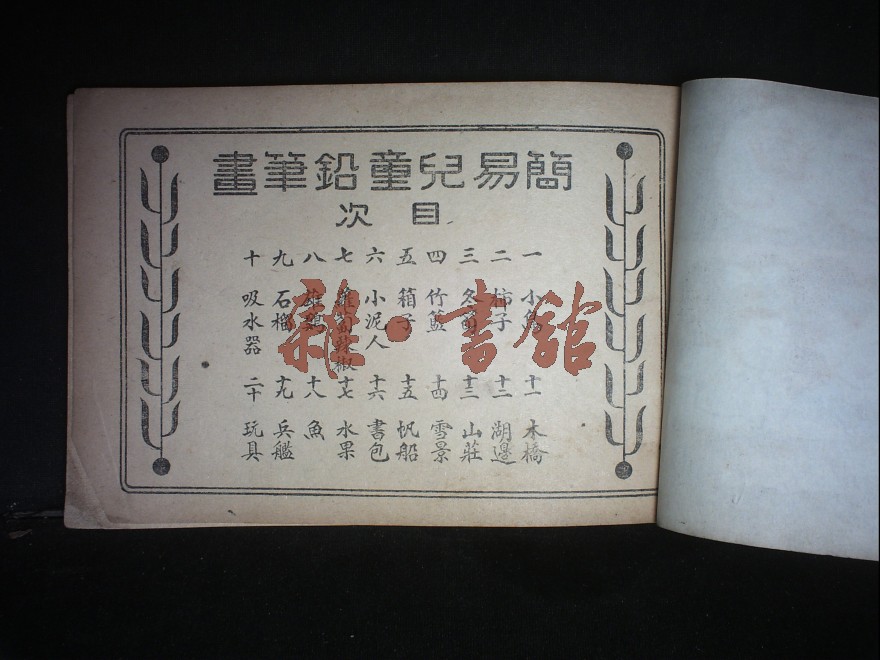 簡易兒童鉛筆畫
目次
一 小鳥
二 柿子
三 冬筍
四 竹籃
五 箱子
六 小泥人
七 蘿蔔辣椒
八 雄鷄
九 石榴
十 吸水器
十一 木橋
十二 湖邊
十三 山莊
十四 雪景
十五 帆船
十六 書包
十七 水果
十八 魚
十九 兵艦
二十 玩具
雜·書館